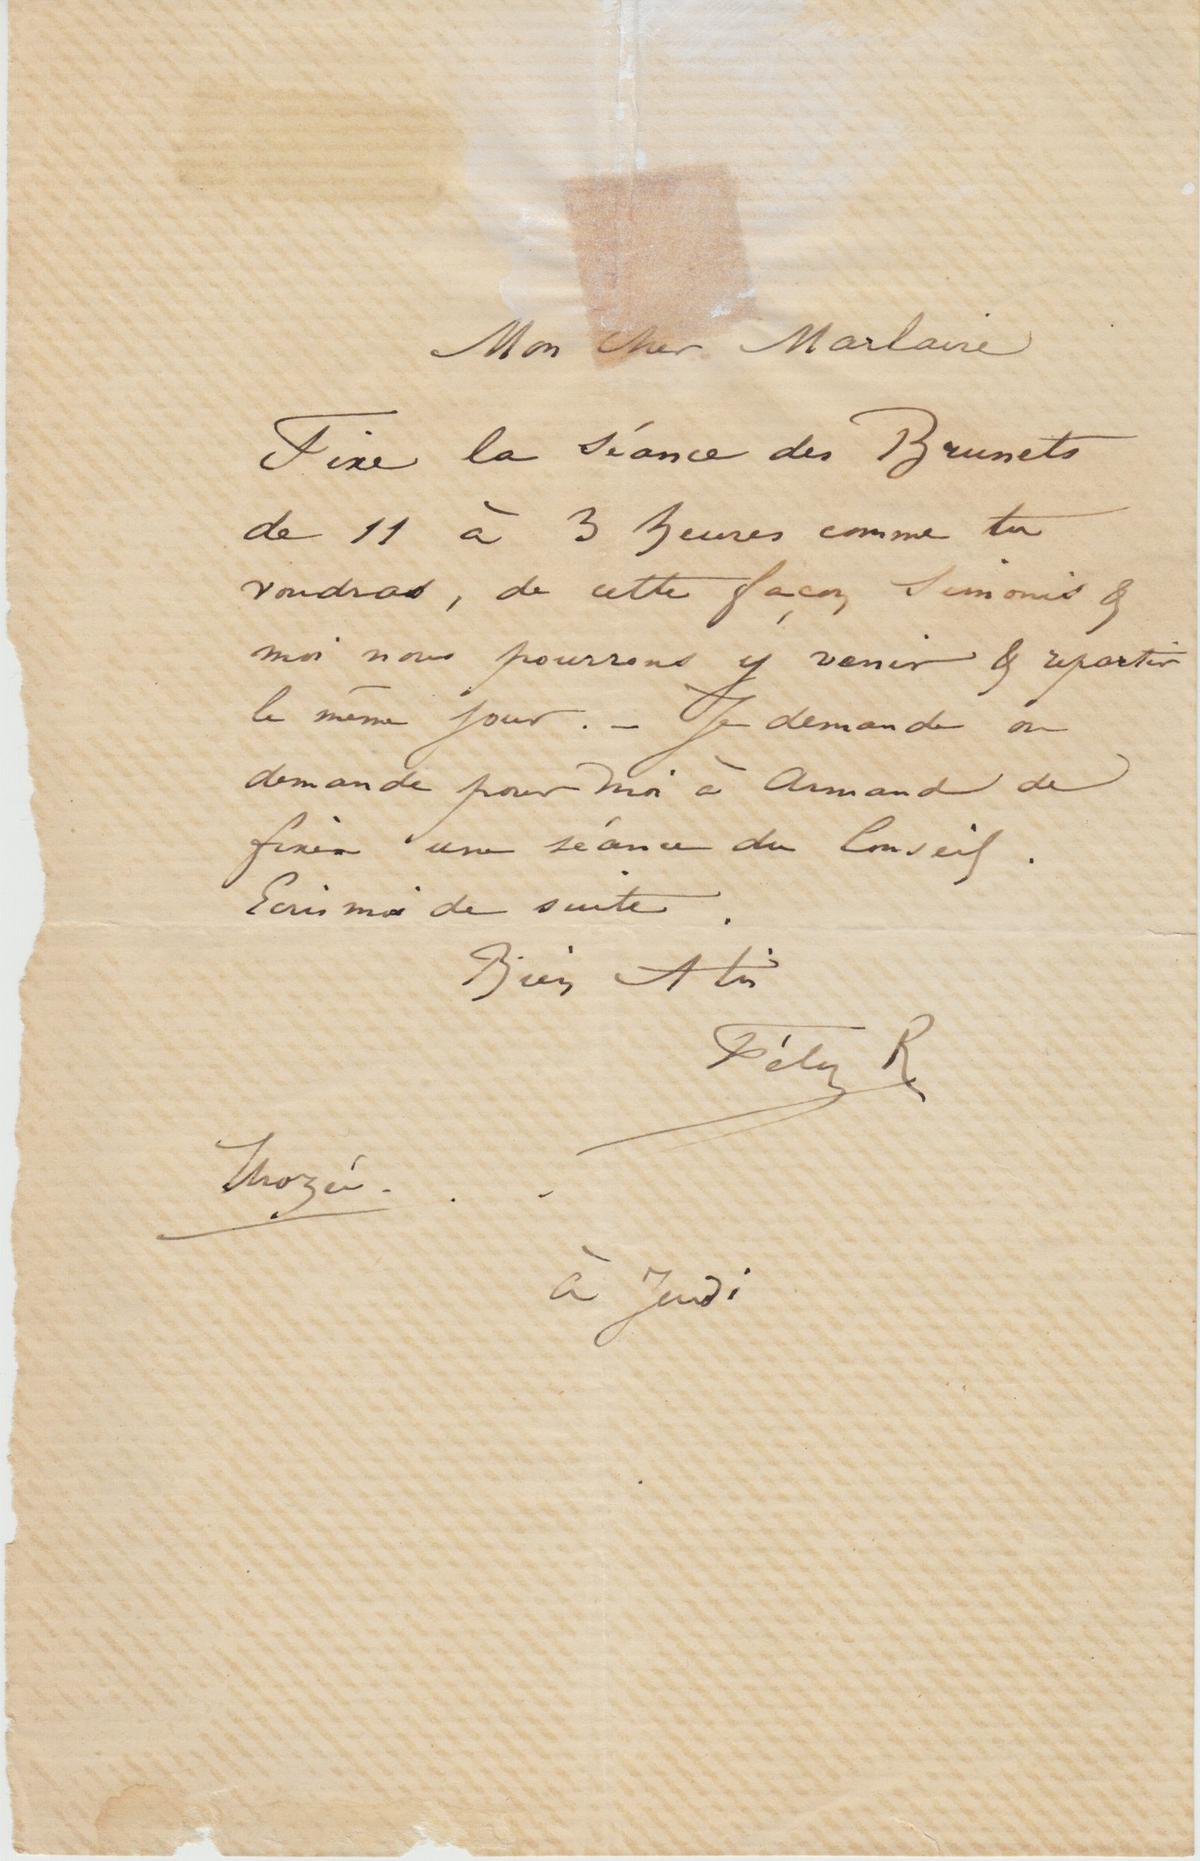 Mon cher Marlaire
Fixe la séance des Brunets
de 11 à 3 heures comme tu
voudras, de cette façon Simonis &
moi nous pourrons y venir & repartir
le même jour. – Je demande ou
demande pour moi à Armand de
fixer une séance du Conseil.
Ecris moi de suite.
Bien A toi
Fély R
Thozée.
à Jeudi